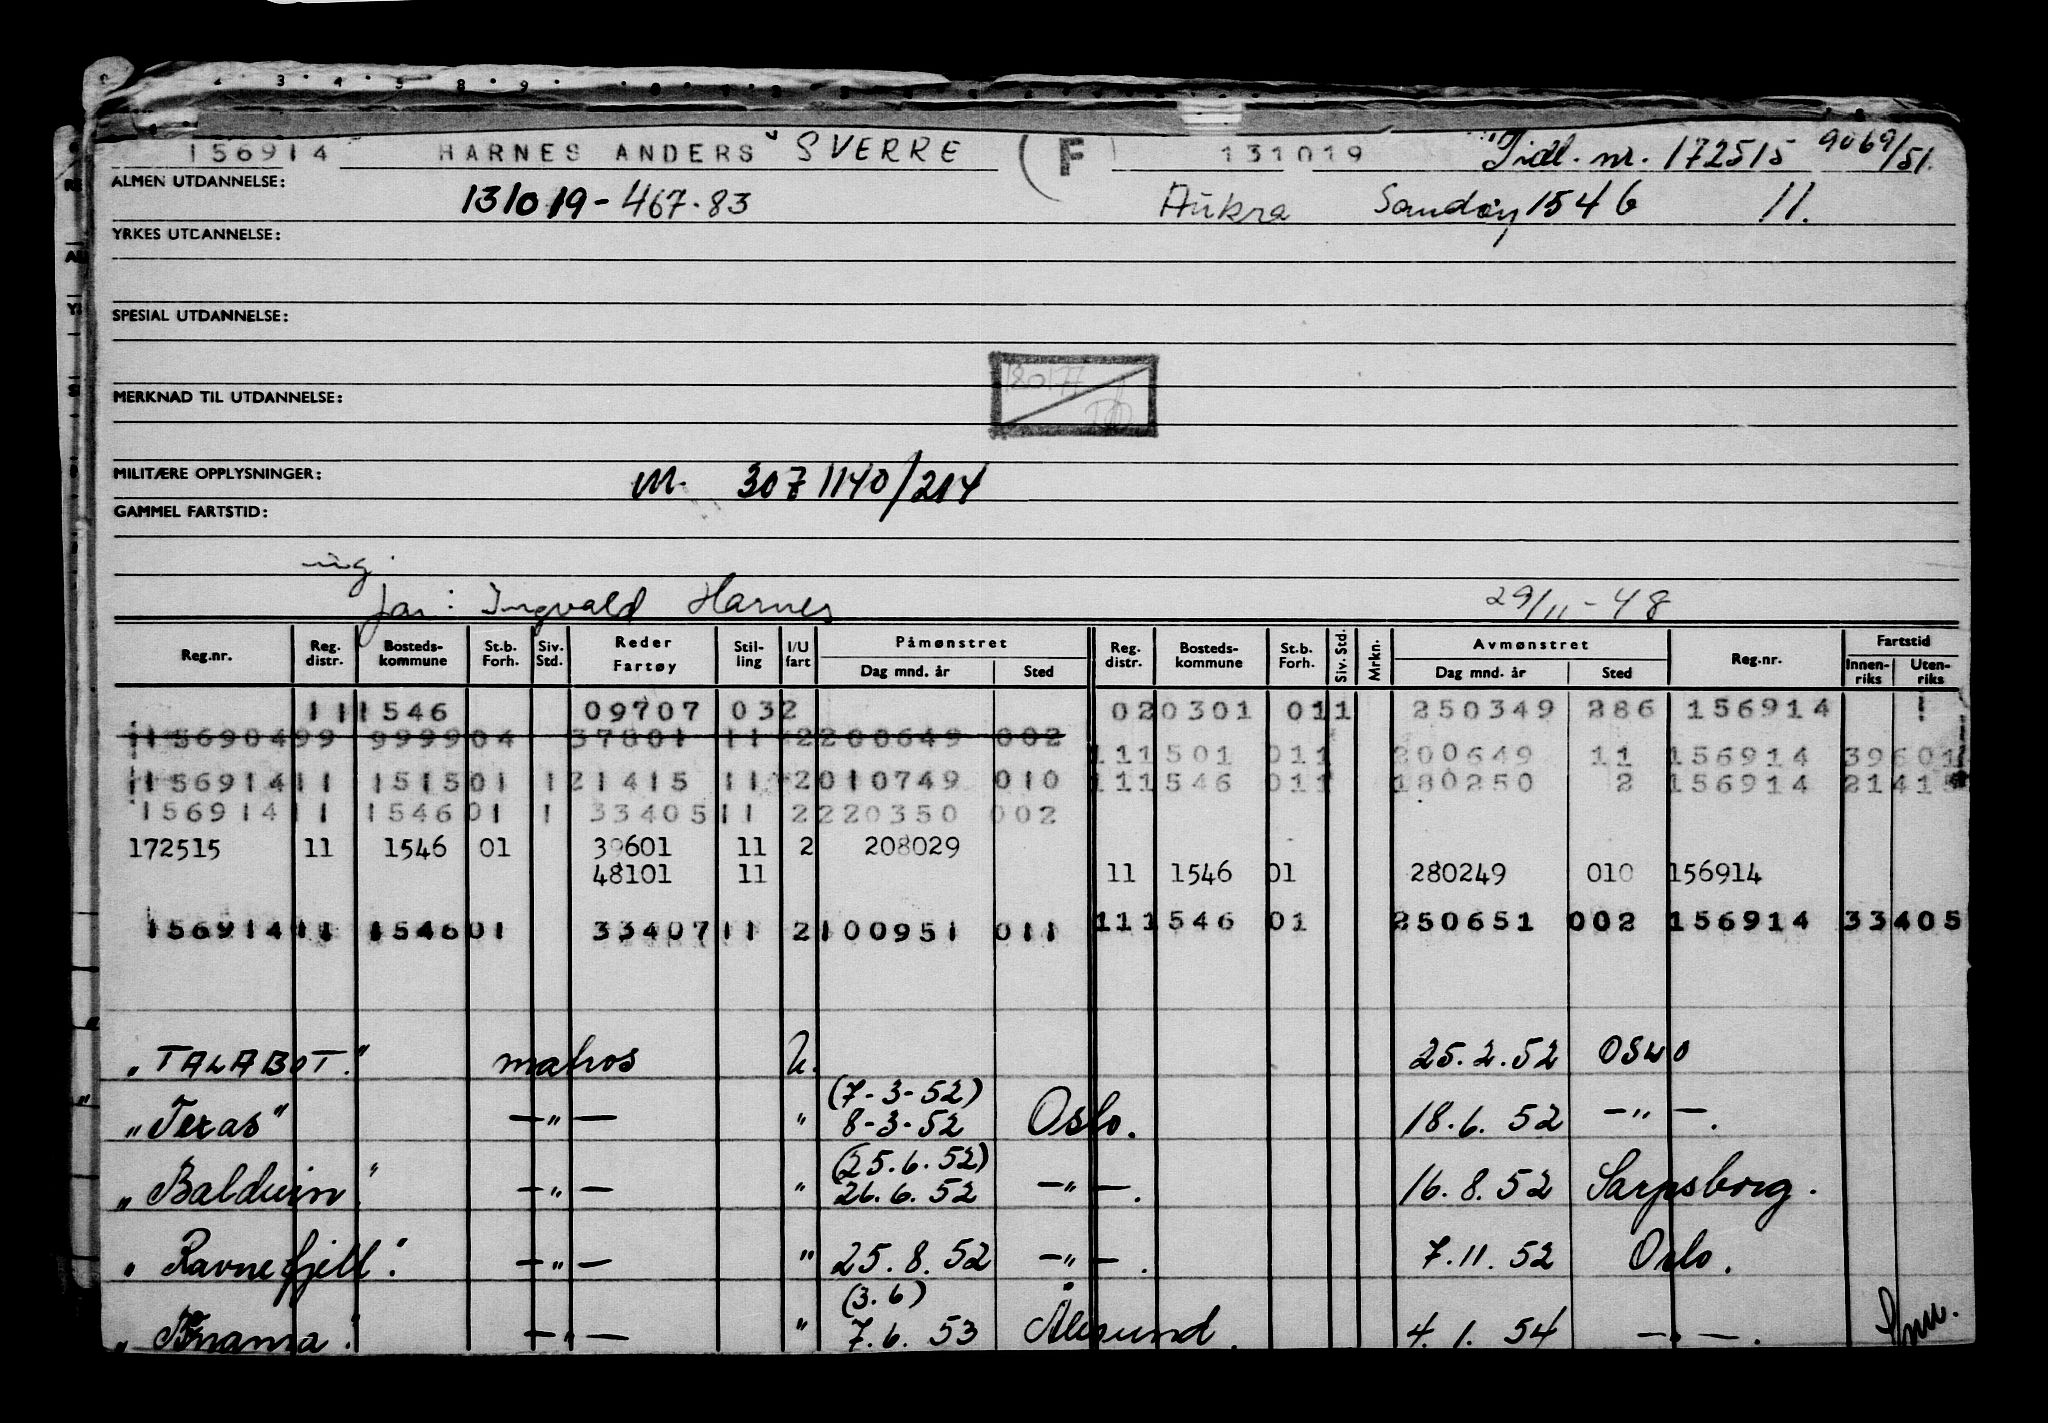 156914 HARNES ANDERS SVERRE (F) 131019 Tidl. nr. 172515 9069/51.
ALMEN UTDANNELSE: 131019-467.83 Aukra Sandøy 1546 11.
YRKES UTDANNELSE:
SPESIAL UTDANNELSE:
180177
MERKNAD TIL UTDANNELSE:
MILITÆRE OPPLYSNINGER: M. 3071140/214
GAMMEL FARTSTID:
ug.
far: Ingvald Harnes 29/11-48
Reg.nr. Reg. distr. Bosteds-kommune St.b. Forh. Siv. Std. Reder Fartøy Stil-ling I/U fart Påmønstret Dag mnd. år Sted Reg. distr. Bosteds-kommune St.b. Forh. Siv. Std. Mrkn. Avmønstret Dag mnd. år Sted Reg.nr. Fartstid Innen-riks Uten-riks
11 1546 09707 032 02 0301 011 250349 286 156914
115690499 999904 37801 11 2 200649 002
111501 011 200649 11 156914 39601
156914 11 151501 1 21415 11 2 010749 010 111546 011 180250 2 156914 21415
156914 11 154601 1 33405 11 2 220350 002
172515 11 1546 01 39601 11 2 208029
48101 11 11 1546 01 280249 010 156914
156914 11 1546 01 33407 11 2 100951 011 111546 01 250651 002 156914 33405
"TALABOT" matros U. 25.2.52 OSLO
"Texas" —"— " (7-3-52) 8-3-52 Oslo. 18.6.52 —"—.
"Balduin" —"— " (25.6.52) 26.6.52 —"—. 16.8.52 Sarpsborg.
"Ravnefjell" —"— " 25.8.52 —"—. 7.11.52 Oslo.
—"— " (3.6) 7.6.53 Ålesund. 4.1.54 —"—.